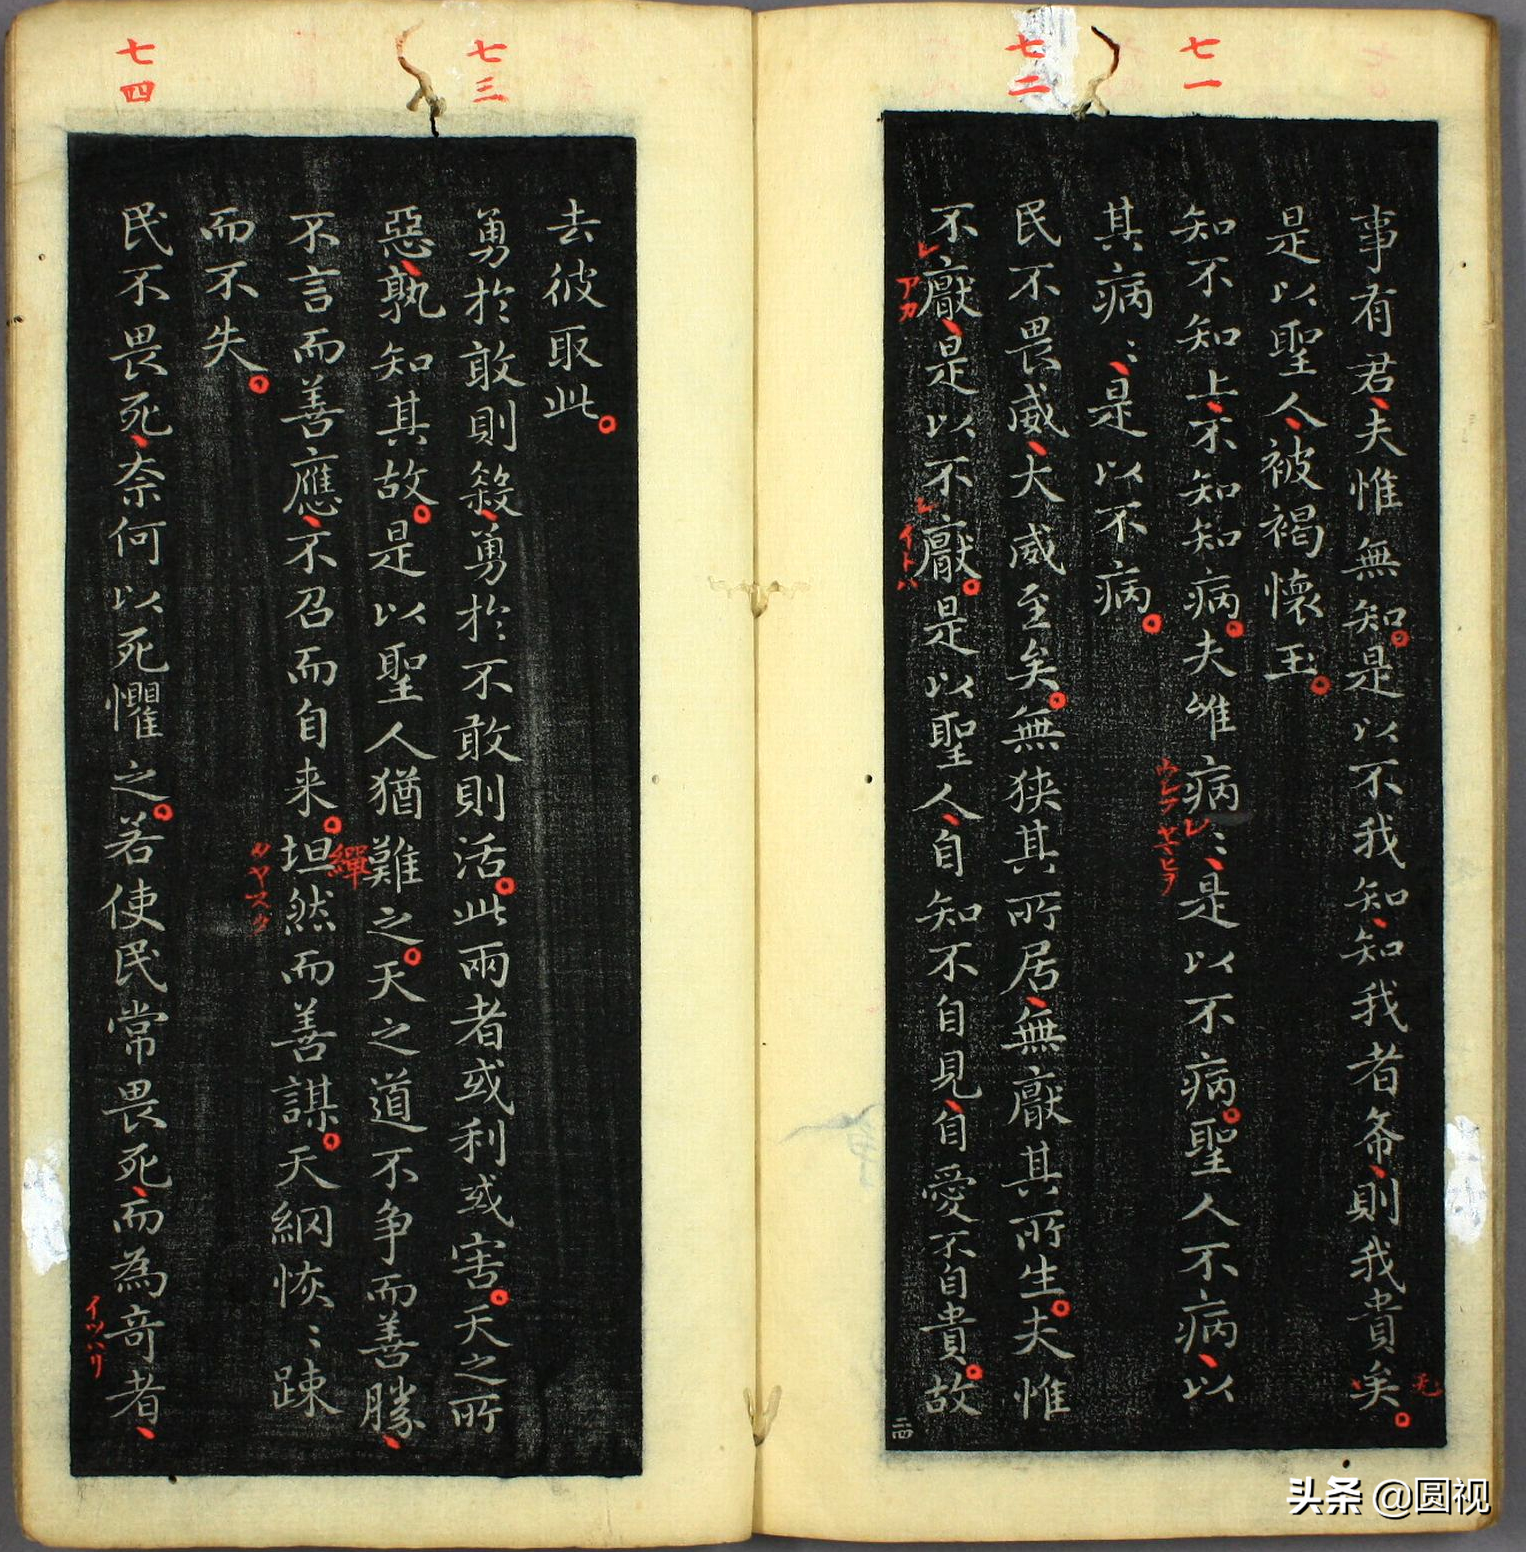 七一
事有君、夫惟無知。是以不我知、知我者希、則我貴矣。
是以聖人、被褐懷玉。
知不知上、不知知病。夫唯病〻、是以不病。聖人不病、以
其病〻、是以不病。
七二
民不畏威、大威至矣。無狭其所居、無厭其所生。夫惟
不厭、是以不厭。是以聖人、自知不自見、自愛不自貴。故
アカ
イトハ
二四
去彼取此。
七三
勇於敢則殺、勇於不敢則活。此兩者或利或害。天之所
惡、孰知其故。是以聖人猶難之。天之道不争而善勝、
不言而善應、不召而自来。坦然而善謀。天網恢〻踈
繟
而不失。
七四
民不畏死、奈何以死懼之。若使民常畏死、而為奇者、
イツハリ
头条 @圆视